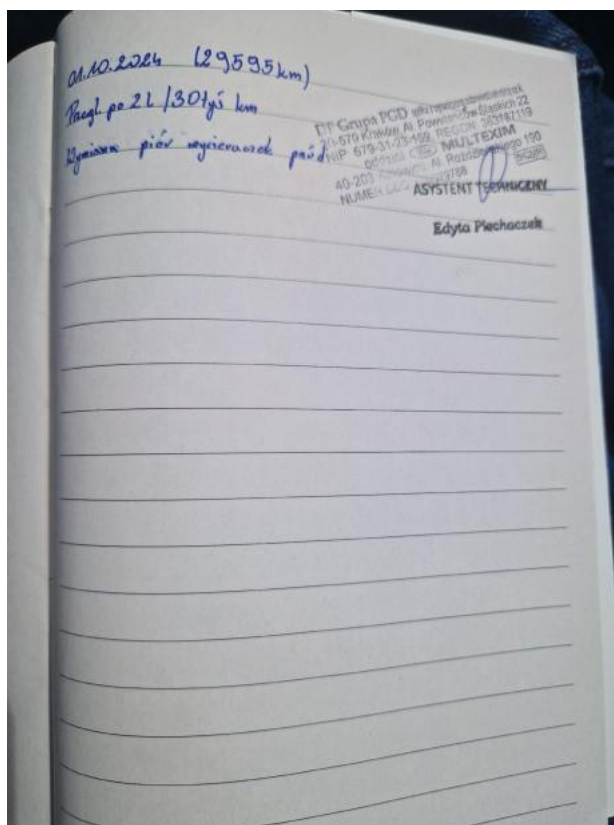 01.10.2024 (29595km)
Przegl. po 2L /30tyś km
Wymiana piór wycieraczek przód
DP Grupa PGD
30-570 Kraków, Al. Powstańców Śląskich 22
NIP 679-31-23-459, REGON
MULTEXIM
40-203 Al. Roździeńskiego 190
NUMER
ASYSTENT TECHNICZNY
Edyta Piechaczek